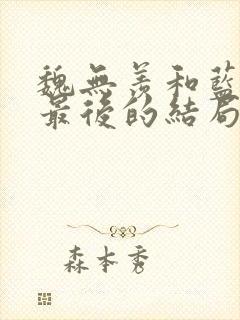 魏無羨和藍
最後的結局
森本秀